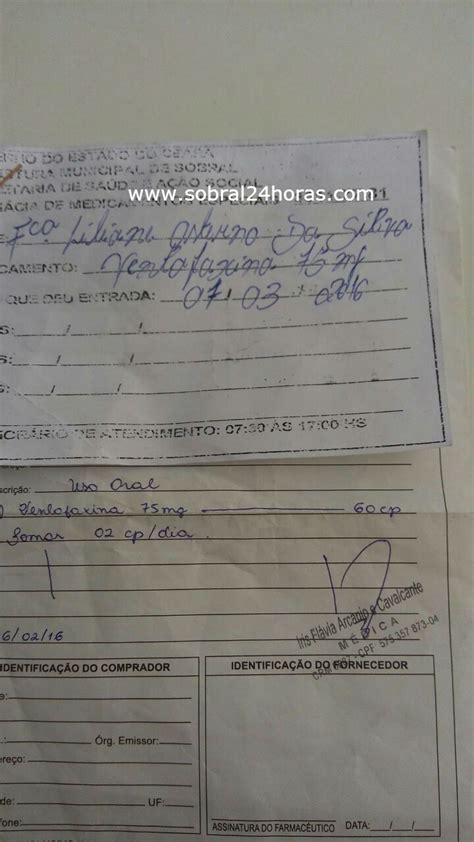 DO ESTADO DO CEARÁ
MUNICIPAL DE SOBRAL
DE SAÚDE E AÇÃO SOCIAL
www.sobral24horas.com
DE MEDICAMENTOS
Fca. Liliana Da Silva
CAMENTO: Venlafaxina 75 mg
QUE DEU ENTRADA: 07/03 2016
S: / /
S: / /
S: / /
HORÁRIO DE ATENDIMENTO: 07:30 ÀS 17:00 HS
scrição: Uso Oral
Venlafaxina 75mg 60 cp
Tomar 02 cp/dia
6/02/16
Iris Flávia Arcanjo e Cavalcante
MÉDICA
CPF 575.357 873-04
IDENTIFICAÇÃO DO COMPRADOR
IDENTIFICAÇÃO DO FORNECEDOR
e:
.: Órg. Emissor:
ereço:
de: UF:
fone:
ASSINATURA DO FARMACÊUTICO DATA: / /